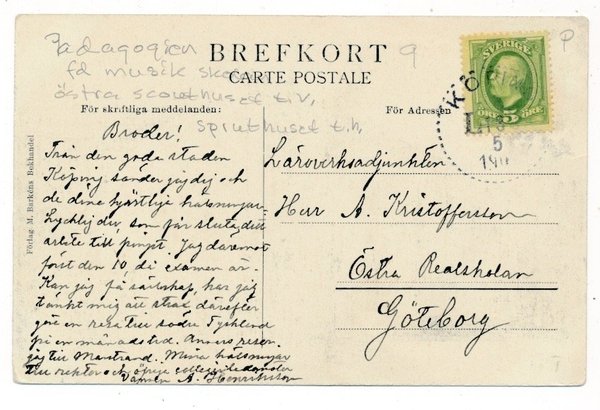 Pædagogien
fd musik skolan
östra scouthuset t.v,
spruthuset t.h,
9
P
BREFKORT
CARTE POSTALE
För skriftliga meddelanden:
För Adressen
SVERIGE
ÖRE 5 ÖRE
KÖPING
5
Förlag M. Barkéns Bokhandel
Broder!
Från den goda staden
Köping sänder jag dig och
de dina hjärtliga hälsningar.
Lycklig du, som får sluta ditt
arbete till pingst. Jag däremot
först den 10, då examen är.
Kan jag få sällskap, har jag
tänkt mig att strax därefter
göra en resa till södra Tyskland
på en månadstid. Annars reser
jag till Marstrand. Mina hälsningar
till rektor och öfriga
Vännen A. Henriksson
Läroverksadjunkten
Herr A. Kristoffersson
Östra Realskolan
Göteborg